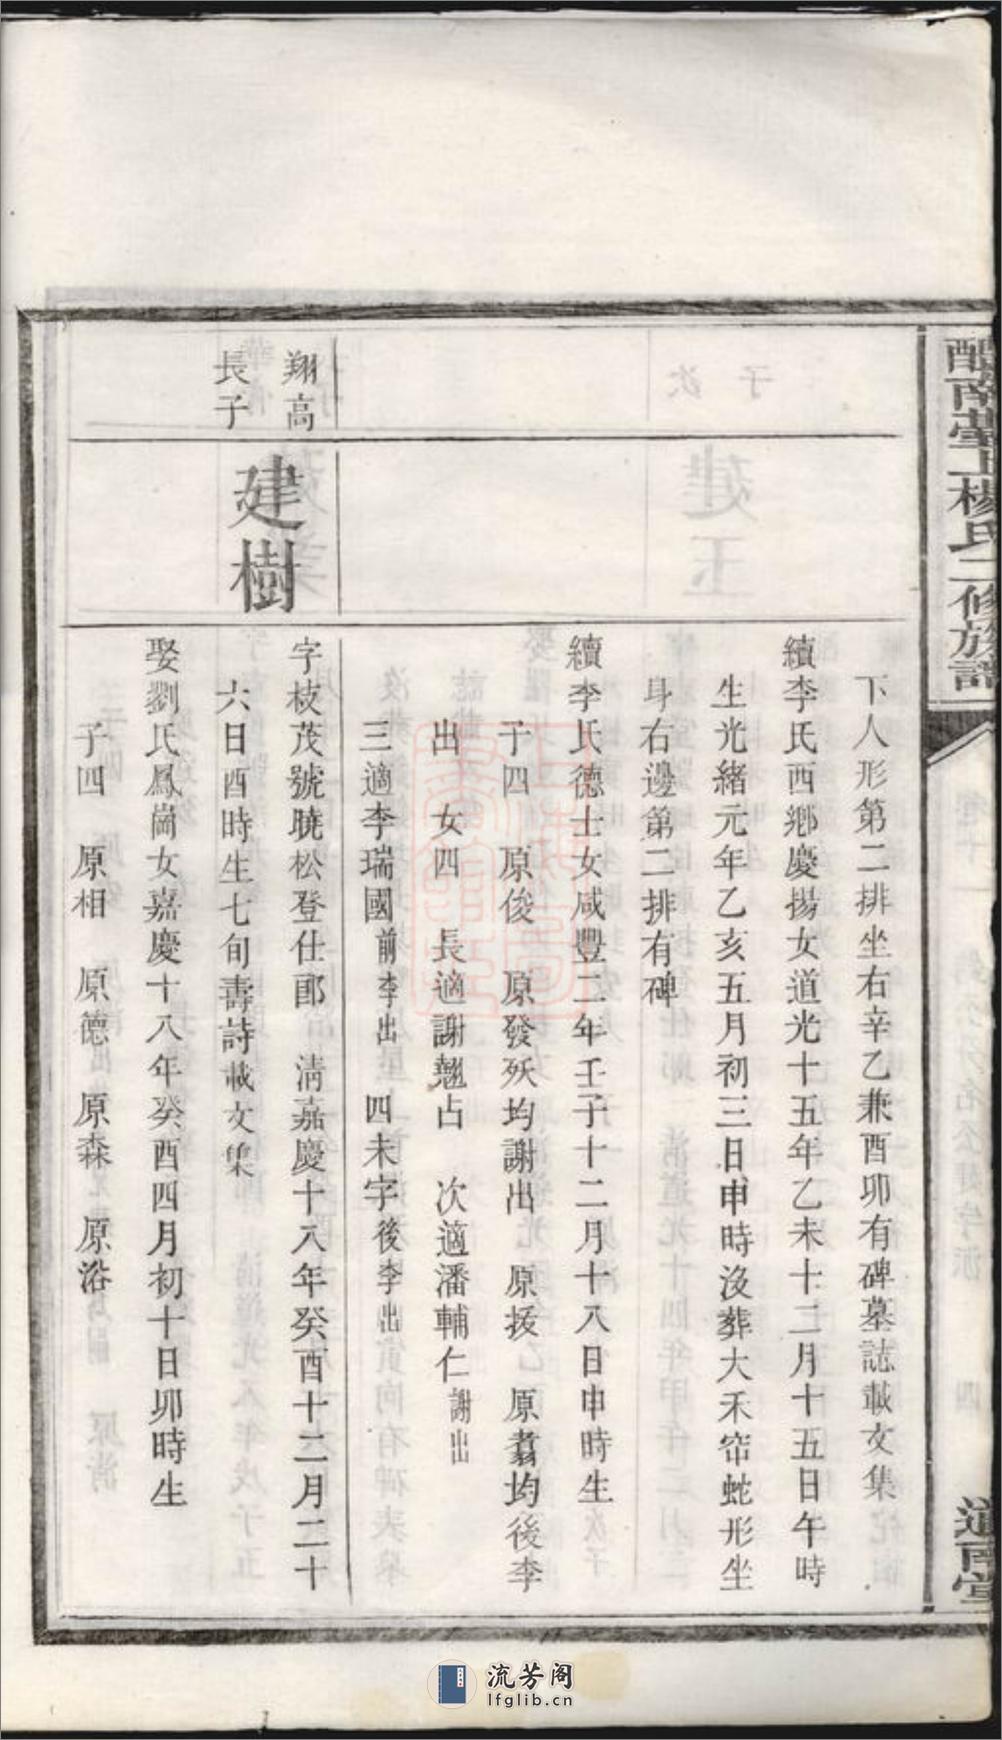 南臺上楊氏二修族譜
道南堂
下人形第二排坐右辛乙兼酉卯有碑墓誌載文集
續李氏西鄉慶揚女道光十五年乙未十二月十五日午時
生光緒元年乙亥五月初三日申時沒葬大禾帘蛇形坐
身右邊第二排有碑
續李氏德士女咸豐二年壬子十二月十八日申時生
子四　原俊　原發殀均謝出　原拔　原翥均後李
出　女四　長適謝翹占　次適潘輔仁謝出
三適李瑞國前李出　四未字後李出
翔高
長子
建樹
字枝茂號曉松登仕郎　清嘉慶十八年癸酉十二月二十
六日酉時生七旬壽詩載文集
娶劉氏鳳崗女嘉慶十八年癸酉四月初十日卯時生
子四　原相　原德　原森　原浴
流芳阁
lfglib.cn